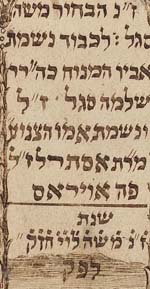 ז״נ הבחור משה
סגל׃ לכבוד נשמת
אביו המנוח כה״רי
שלמה סגל׳ ז״ל
ונשמת אמו הצנוע׳
מרת אסתר לי״ל
פה אויראס
שנת
ז״נ משה לוי חזק״
לפק